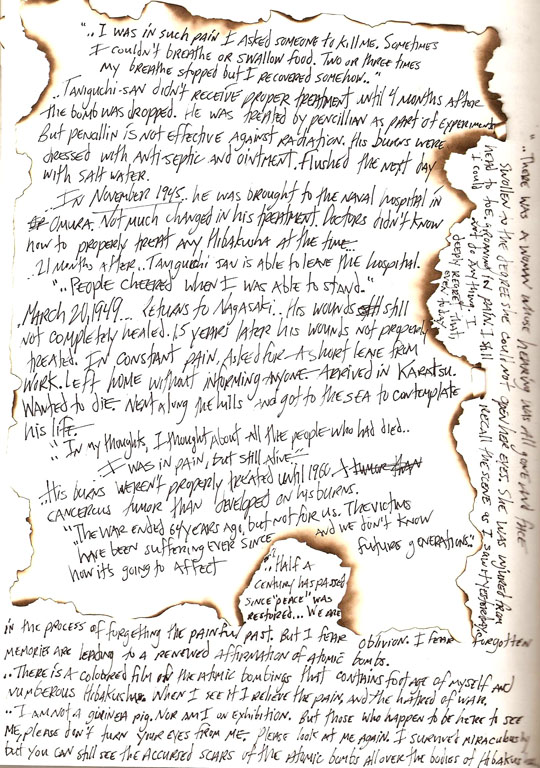 "..I was in such pain I asked someone to kill me. Sometimes
I couldn't breathe or swallow food. Two or three times
my breathe stopped but I recovered somehow.."
..Taniguchi-san didn't receive proper treatment until 4 months after
the bomb was dropped. He was treated by pencillian as part of experiment
But pencillin is not effective against radiation. His burns were
dressed with anti-septic and ointment. flushed the next day
with salt water.
..In November 1945.. he was brought to the naval hospital in
Omura. Not much changed in his treatment. Doctors didn't know
how to properly treat any Hibakusha at the time..
..21 months after.. Taniguchi san is able to leave the hospital.
"..People cheered when I was able to stand.."
..March 20, 1949.... Returns to Nagasaki.. His wounds still
not completely healed. 15 years later his wounds not properly
treated. In constant pain, asked for a short leave from
work. Left home without informing anyone. Arrived in Karatsu.
Wanted to die. Went along the hills and got to the sea to contemplate
his life.
"In my thoughts, I thought about all the people who had died..
I was in pain, but still alive.."
..His burns weren't properly treated until 1960. A tumor than
cancerous tumor than developed on his burns.
"The war ended 64 years ago, but not for us. The victims
have been suffering ever since and we don't know
how it's going to affect future generations."
"..There was a woman whose hearing was all gone and face
swollen to the degree she could not open her eyes. She was injured from
head to toe, groaning in pain. I still recall the scene as I saw it yesterday.
I could not do anything. I
deeply regret that,
even today.
"..Half a
century has passed
since "peace" was
restored... We are
in the process of forgetting the painful past. But I fear oblivion. I fear forgotten
memories are leading to a renewed affirmation of atomic bombs.
..There is a coloured film of the atomic bombings that contains footage of myself and
numberous Hibakusha. When I see it I relieve the pain, and the hatred of war.
..I am not a guinea pig. Nor am I on exhibition. But those who happen to be here to see
me, please don't turn your eyes from me, please look at me again. I survived miraculously
but you can still see the accursed scars of the atomic bombs all over the bodies of Hibakusha